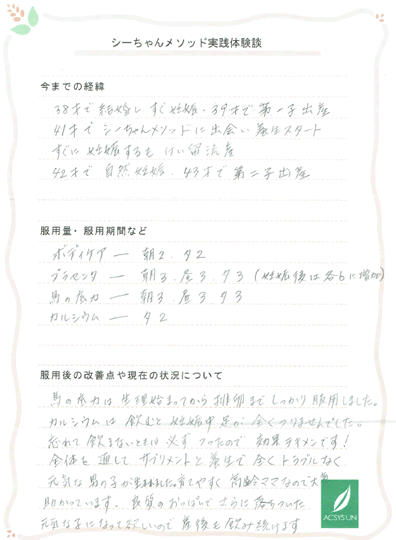 シーちゃんメソッド実践体験談
今までの経緯
38才で結婚し すぐ妊娠・39才で第一子出産
41才で シーちゃんメソッドに出会い 養生スタート
すぐに 妊娠するも けい留流産
42才で 自然妊娠・43才で 第二子出産
服用量・服用期間など
ボディケア ー 朝2. 夕2
プラセンタ ー 朝3. 昼3. 夕3 (妊娠後は各6に増加)
馬の底力 ー 朝3. 昼3 夕3
カルシウム ー 夕2
服用後の改善点や現在の状況について
馬の底力は生理始まってから排卵までしっかり服用しました。
カルシウムは 飲むと妊娠中足が全くつりませんでした。
忘れて飲まないときは必ずつったので 効果テキメンです!
全体を通して サプリメントと養生で全くトラブルなく
元気な男の子が生まれた。育てやすく高齢ママなので大変
助かっています。良質のおっぱいでさらに落ちついた
元気な子になって欲しいので産後も飲み続けます
ACSYSUN